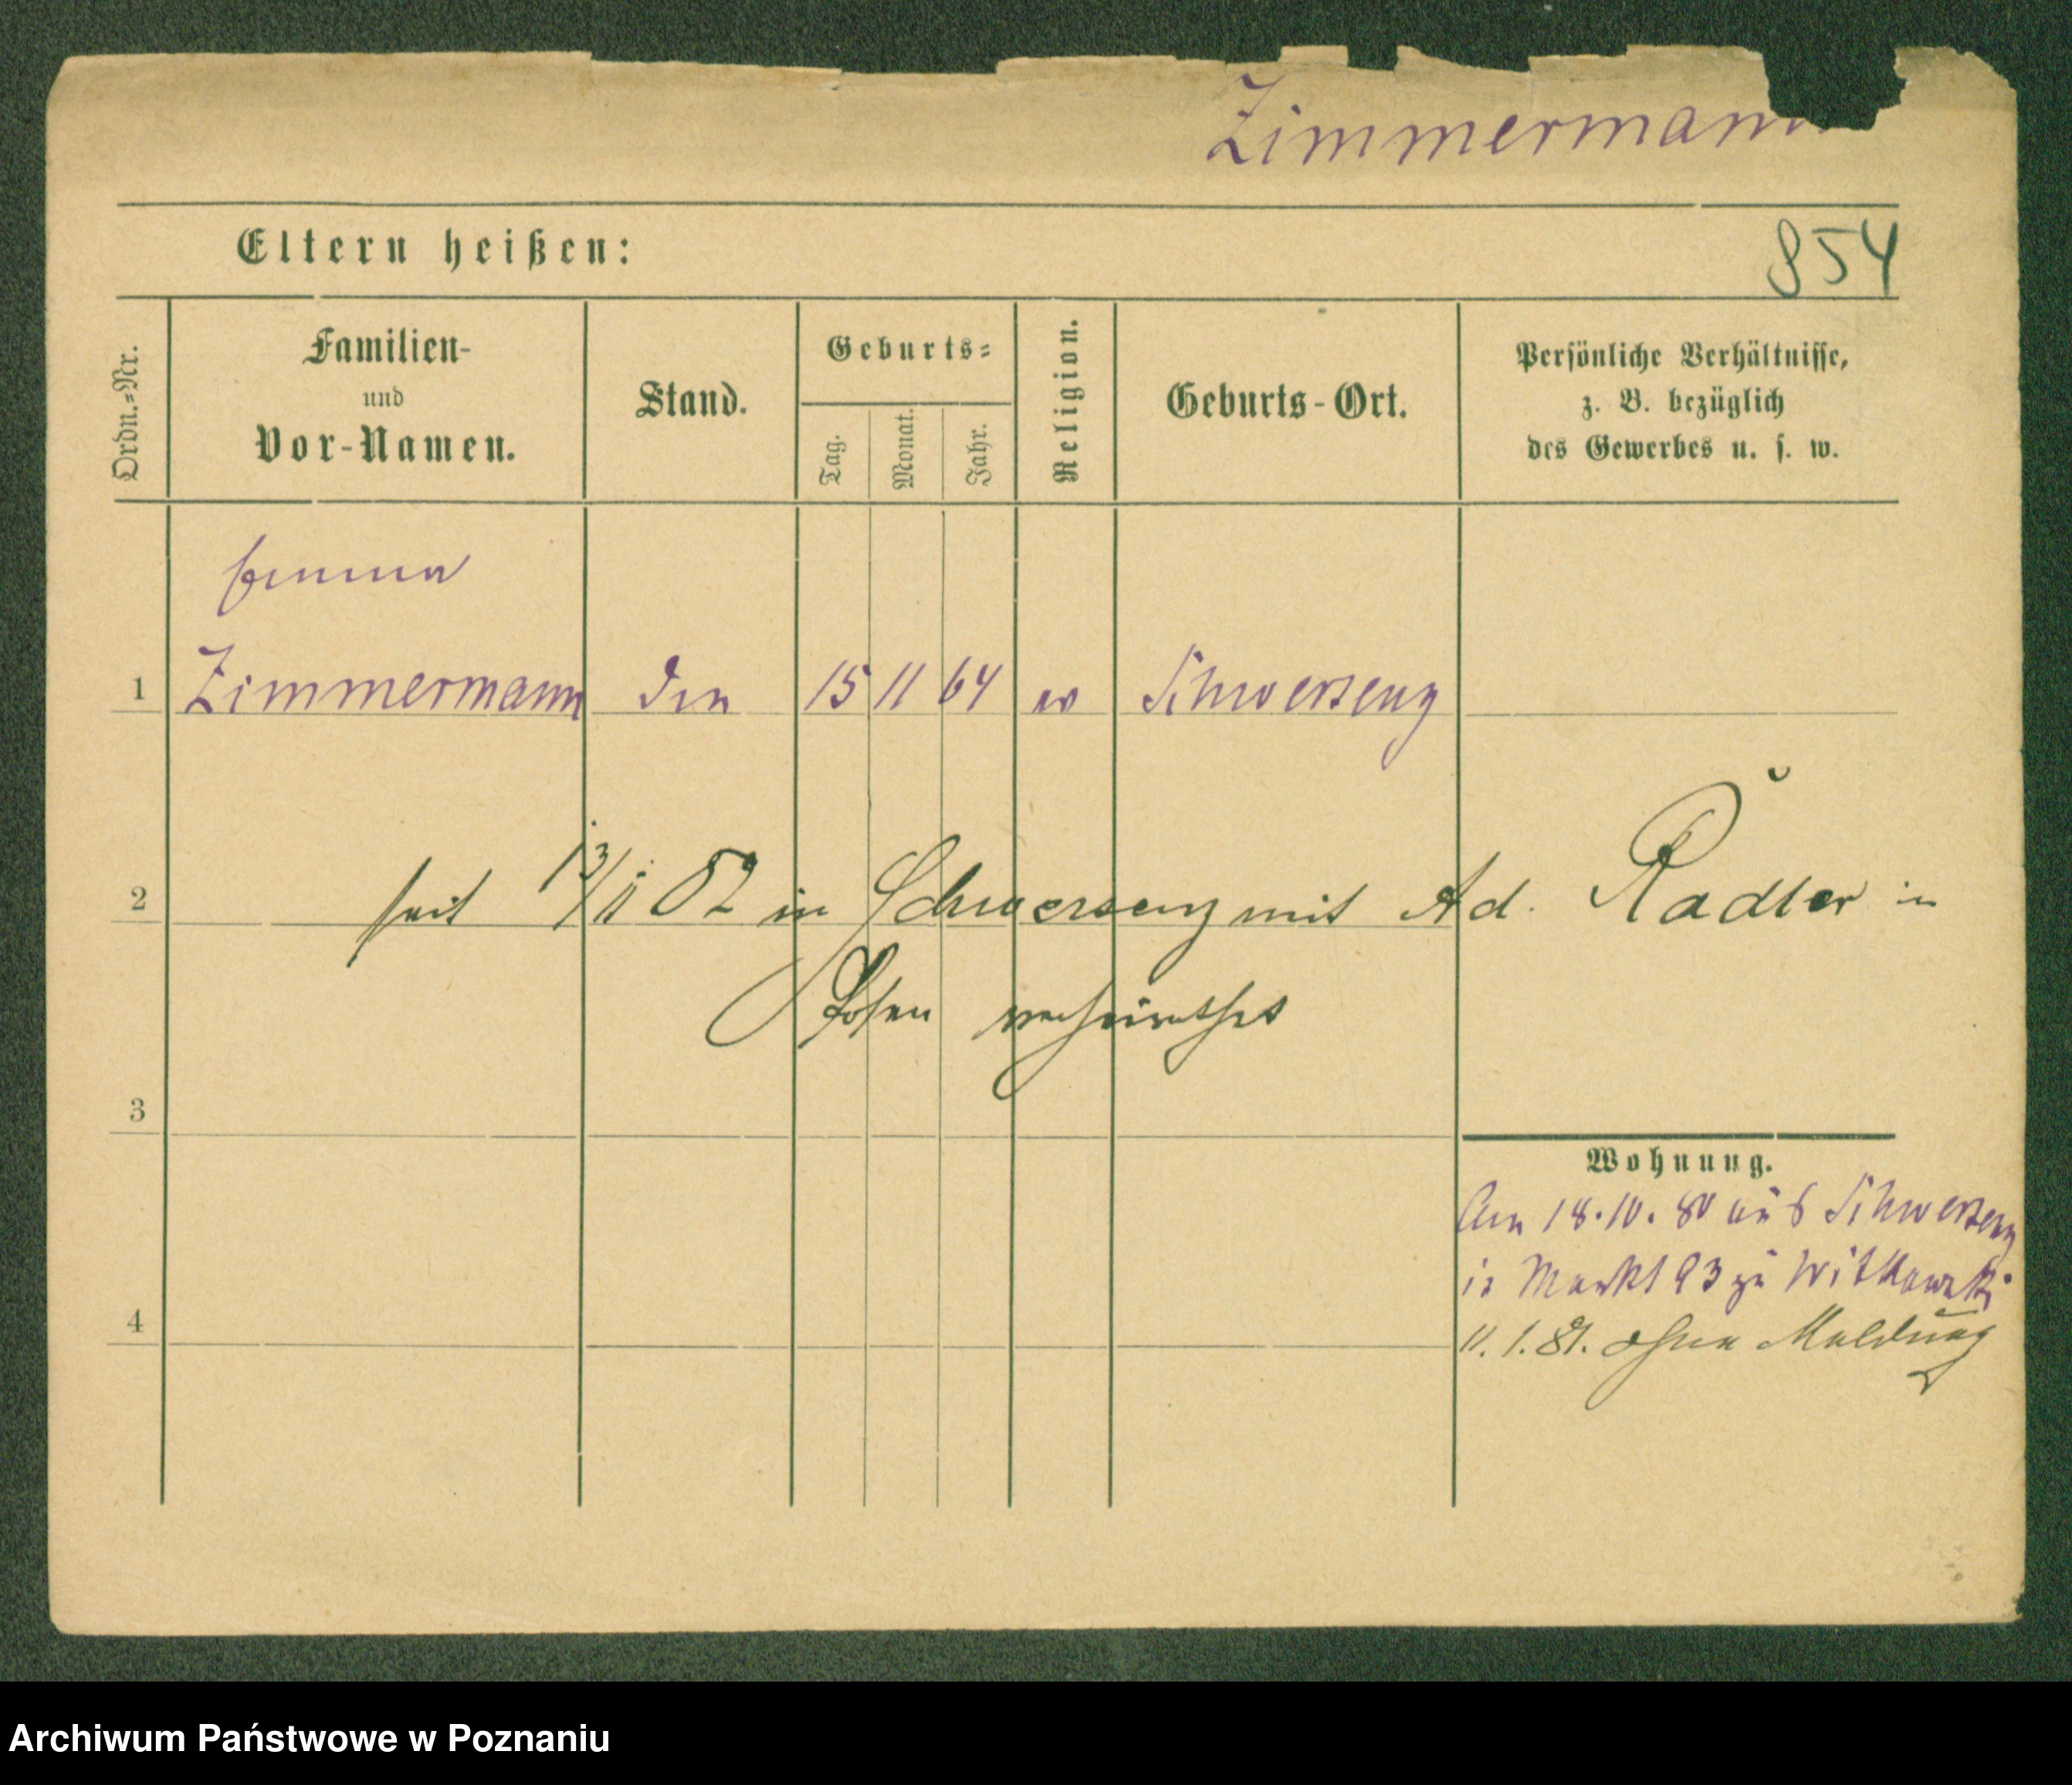 Zimmermann
Eltern heißen:
854
Ordn.-Nr.
Familien-
und
Vor-Namen.
Stand.
Geburts-
Tag.
Monat.
Jahr.
Religion.
Geburts-Ort.
Persönliche Verhältnisse,
z. B. bezüglich
des Gewerbes u. s. w.
Emma
1 Zimmermann 15 11 64 ev Schwersenz
2 seit 13/11 82 in Schwersenz mit Ad. Radler in
Posen verheirathet
3
Wohnung.
Am 18.10.80 aus Schwersenz
in Markt 93 zu Witkowski
4 11.1.81. ohne Meldung
Archiwum Państwowe w Poznaniu